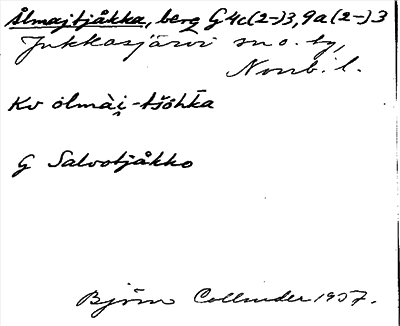 Ålmajtjåkka, berg G4c(2-)3, 9a(2-)3
Jukkasjärvi sn o. tg,
Norrb. l.
Kv olmài̯-tšohka
G Salvotjåkko
Björn Collinder 1957.